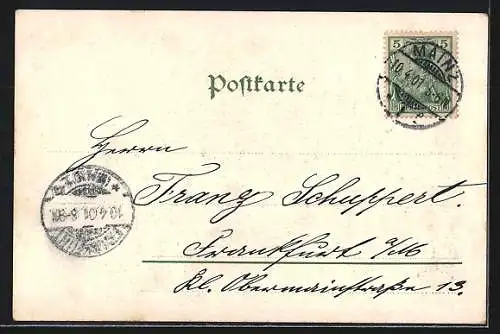 5 5
MAINZ
10.4.01
Postkarte
Herrn
Franz Schuppert.
10.4.01.
Frankfurt a/M
Kl. Obermainstraße 13.